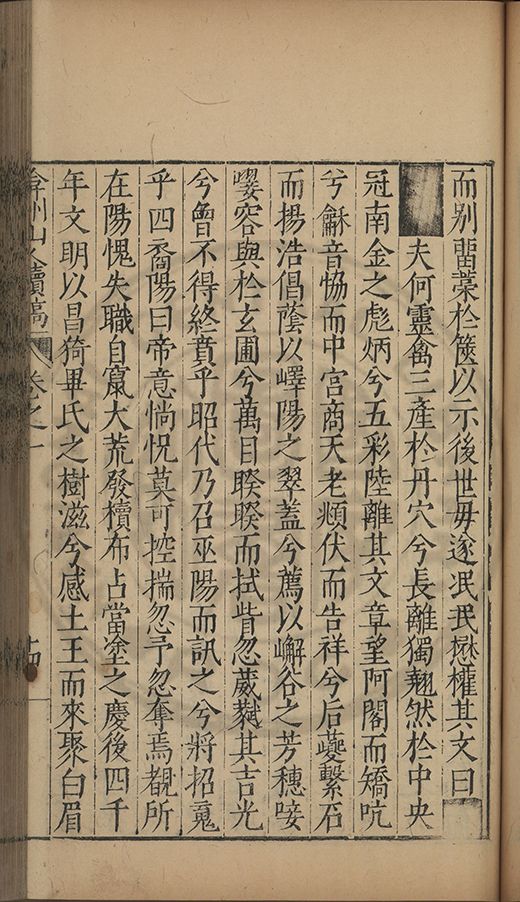 而別䍃藁於篋以示後世毋遂泯泯懋權其文曰
夫何靈禽三產於丹穴兮長離獨翹然於中央
冠南金之彪炳兮五彩陸離其文章望阿閣而矯吭
兮龢音恊而中宮商天老頫伏而告祥兮后夔繫石
而揚浩倡蔭以嶧陽之翠蓋兮薦以嶰谷之芳穗唼
容與於玄圃兮萬目睽睽而拭眥忽葳蕤其吉光
兮曾不得終賁乎昭代乃召巫陽而訊之兮將招䰟
乎四裔陽曰帝意惝怳莫可控揣忽予忽奪焉覩所
在陽愧失職自竄大荒發櫝布占當塗之慶後四千
年文明以昌猗畢氏之樹滋兮感土王而來聚白眉
弇州山人續稿 卷之一 十四